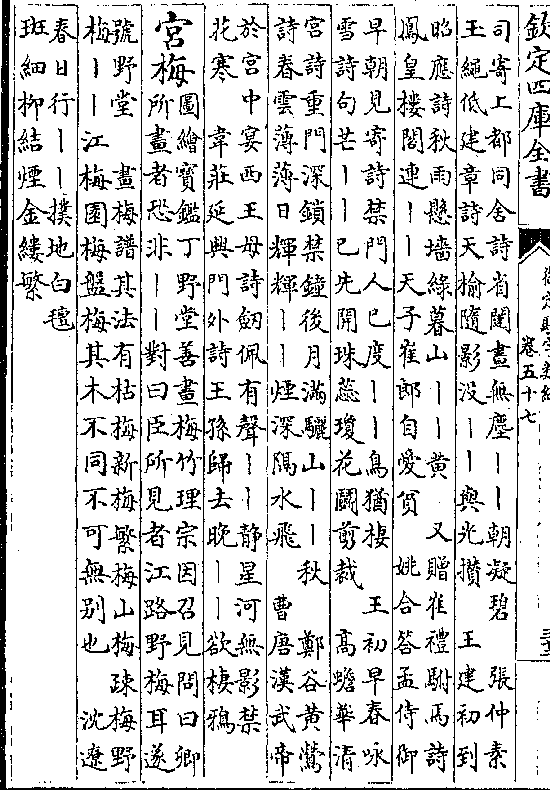 欽定四庫全書
卷五十七
司寄上都同舍詩省闥晝無塵｜｜朝凝碧　張仲素
玉繩低建章詩天榆隨影没｜｜與光攢　王建初到
昭應詩秋雨懸墻綠暮山｜｜黃　又贈崔禮駙馬詩
鳳皇樓閣連｜｜天子崔郎自愛貧　姚合答孟侍御
早朝見寄詩禁門人已度｜｜鳥猶棲　王初早春咏
雪詩句芒｜｜已先開珠蕊瓊花鬭剪裁　高蟾華清
宮詩重門深鎖禁鐘後月滿驪山｜｜秋　鄭谷黃鶯
詩春雲薄薄日輝輝｜｜煙深隔水飛　曹唐漢武帝
於宮中宴西王母詩劒佩有聲｜｜静星河無影禁
花寒　韋莊延興門外詩王孫歸去晚｜｜欲棲鴉
宮梅圖繪寶鑑丁野堂善畫梅竹理宗因召見問曰卿
所畫者恐非｜｜對曰臣所見者江路野梅耳遂
號野堂　畫梅譜其法有枯梅新梅繁梅山梅疎梅野
梅｜｜江梅園梅盤梅其木不同不可無别也　沈遼
春日行｜｜撲地白氊
班細柳結煙金縷繁